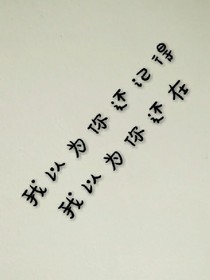 我以为你还记得
我以为你还在